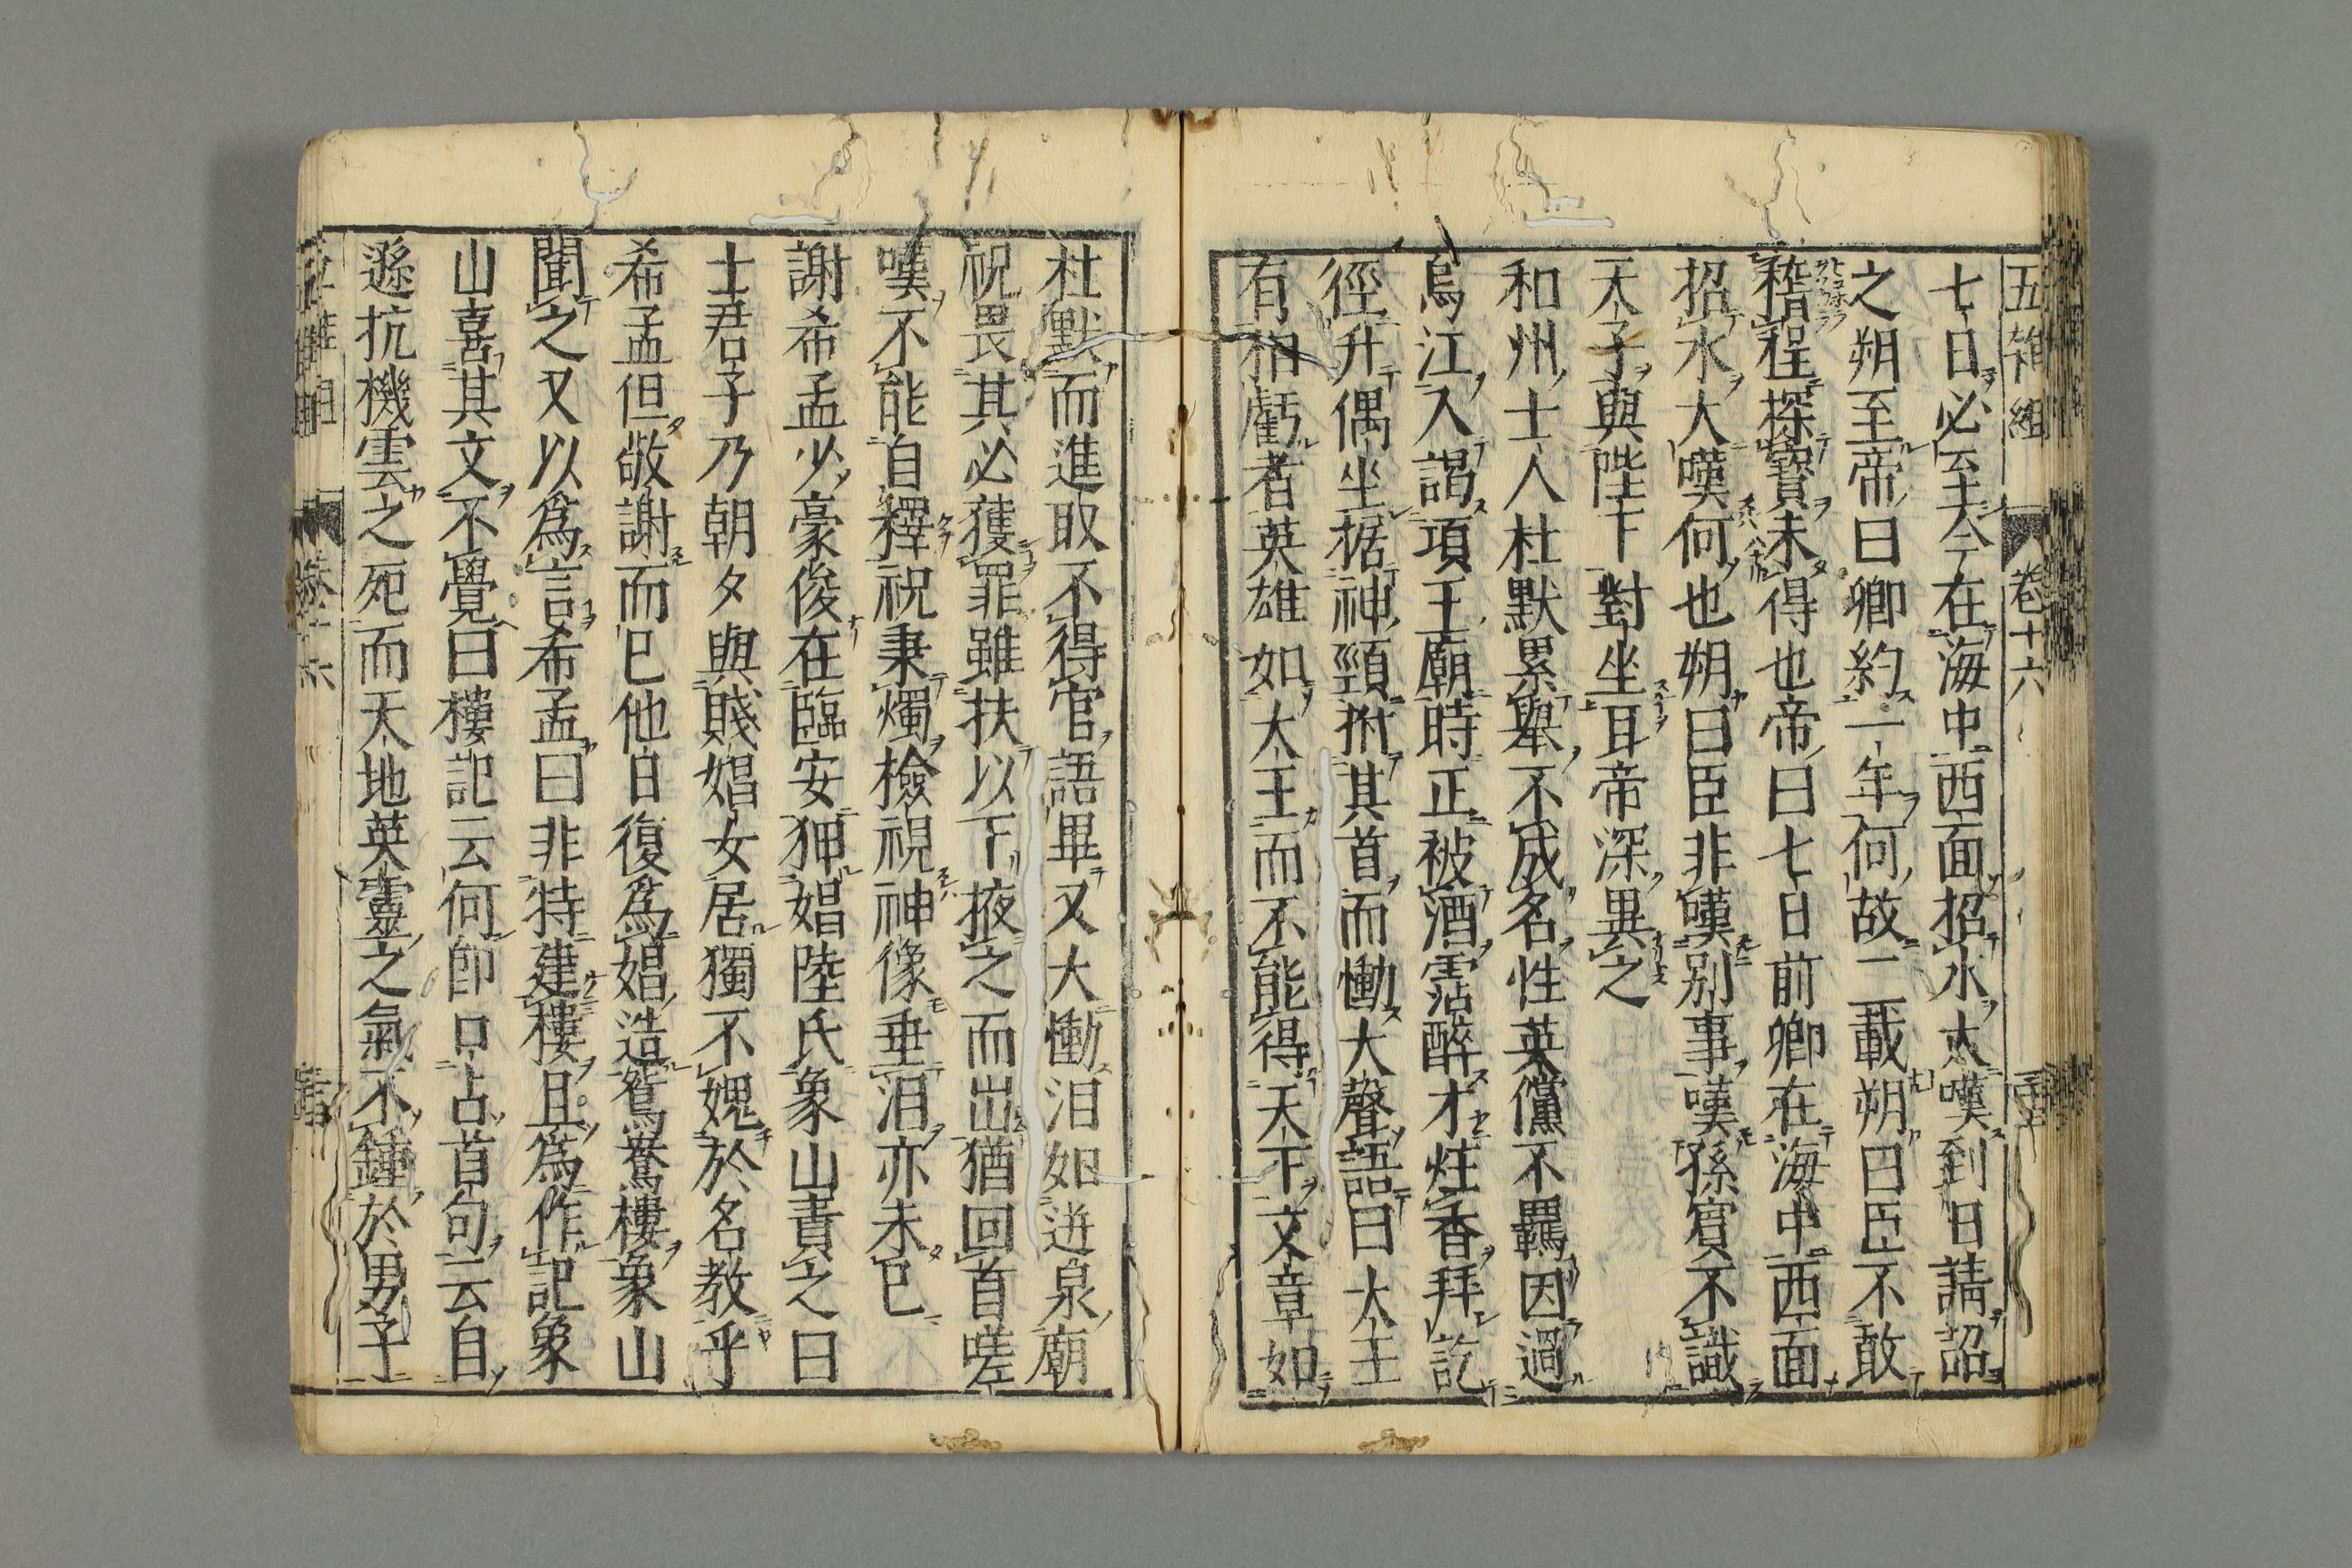 五雜組 卷十六
七日必至今在海中西面招水大嘆到日請詔
之朔至帝曰卿約一年何故二載朔曰臣不敢
稽程探寶未得也帝曰七日前卿在海中西面
招水大嘆何也朔曰臣非嘆別事嘆孫賓不識
天子與陛下對坐耳帝深異之
和州士人杜默累舉不成名性英儻不羈因過
烏江入謁項王廟時正被酒霑醉才炷香拜訖
徑升偶坐據神頸拊其首而慟大聲語曰大王
有相虧者英雄如大王而不能得天下文章如
杜默而進取不得官語畢又大慟泪如迸泉廟
祝畏其必獲罪雖扶以下掖之而出猶回首嗟
嘆不能自釋祝秉燭檢視神像垂泪亦未已
謝希孟少豪俊在臨安狎娼陸氏象山責之曰
士君子乃朝夕與賤娼女居獨不媿於名教乎
希孟但敬謝而已他日復為娼造鴛鴦樓象山
聞之又以為言希孟曰非特建樓且為作記象
山喜其文不覺曰樓記云何即口占首句云自
遜抗機雲之死而天地英靈之氣不鍾於男子